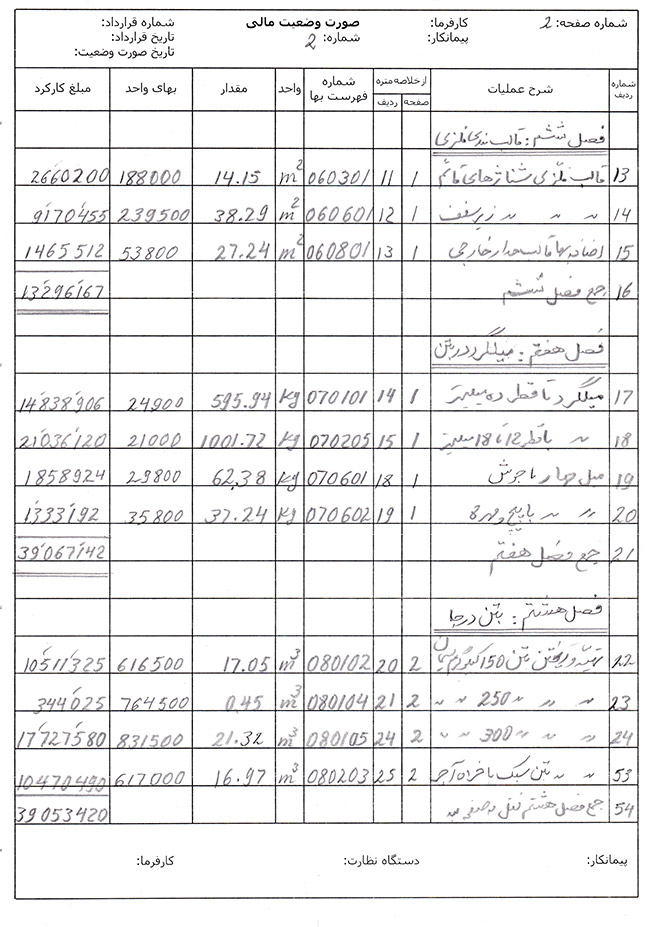 شماره صفحه: 2 کارفرما: صورت وضعیت مالی شماره قرارداد:
پیمانکار: شماره: 2 تاریخ قرارداد:
تاریخ صورت وضعیت:
شماره ردیف شرح عملیات ازخلاصه متره صفحه ردیف شماره فهرست بها واحد مقدار بهای واحد مبلغ کارکرد
فصل ششم: قالب بندی فلزی
13 قالب فلزی شناژهای قائم 1 11 060301 m² 14.15 188000 2660200
14 〃 〃 〃 زیر سقف 1 12 060601 m² 38.29 239500 9170455
15 اضافه بها قالب جدار خارجی 1 13 060801 m² 27.24 53800 1465512
16 جمع فصل ششم 13296167
فصل هفتم: میلگرد در بتن
17 میلگرد تا قطر ده میلیمتر 1 14 070101 kg 595.94 24900 14838906
18 〃 با قطر 12 تا 18 میلیمتر 1 15 070205 kg 1001.72 21000 21036120
19 میل مهار با جوش 1 18 070601 kg 62.38 29800 1858924
20 〃 〃 با پیچ و مهره 1 19 070602 kg 37.24 35800 1333192
21 جمع فصل هفتم 39067142
فصل هشتم: بتن درجا
22 تهیه و ریختن بتن 150 کیلوگرم سیمان 2 20 080102 m³ 17.05 616500 10511325
23 〃 〃 〃 250 〃 〃 2 21 080104 m³ 0.45 764500 344025
24 〃 〃 〃 300 〃 〃 2 24 080105 m³ 21.32 831500 17727580
53 〃 〃 بتن سبک با خرده آجر 2 25 080203 m³ 16.97 617000 10470490
54 جمع فصل هشتم نقل به صفحه بعد 39053420
پیمانکار: دستگاه نظارت: کارفرما: